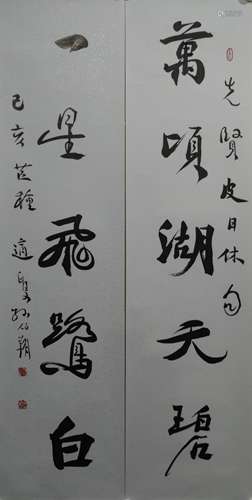 先賢皮日休句
萬頃湖天碧
一星飛鷺白
己亥芒種適孫伯翔